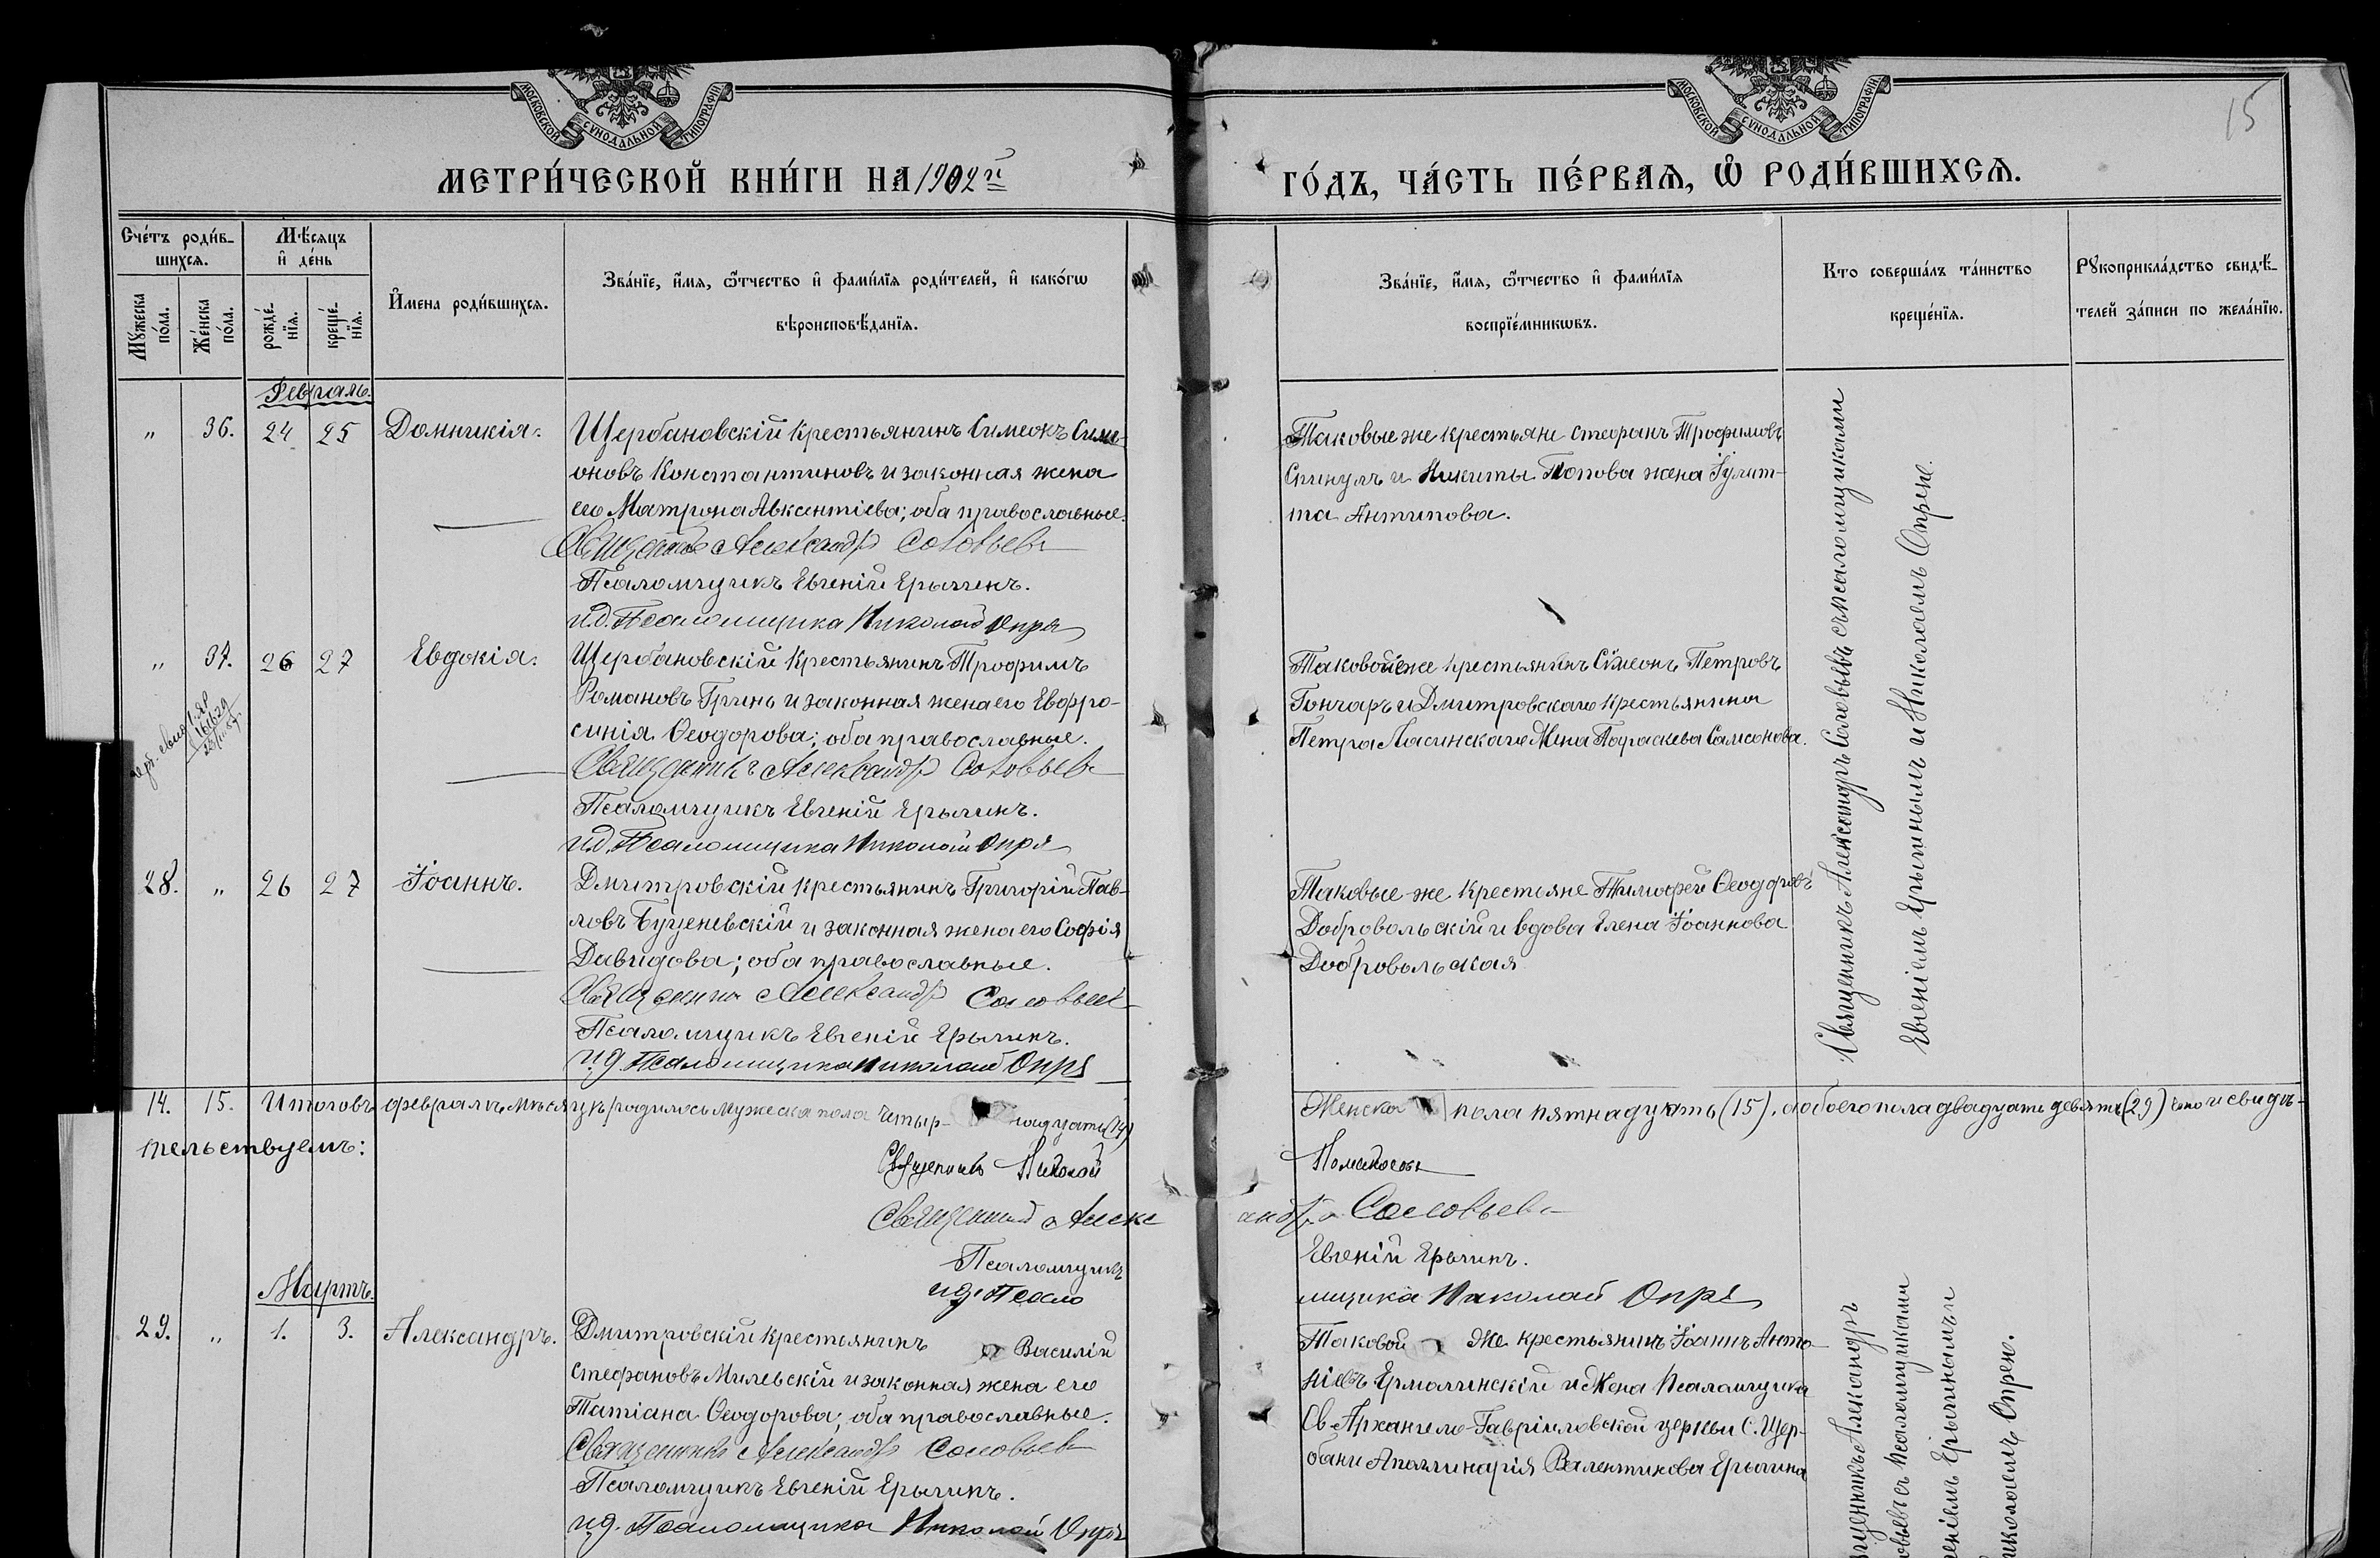 МОСКОВСКОЙ СѴНОДАЛЬНОЙ ТИПОГРАФІИ
МОСКОВСКОЙ СѴНОДАЛЬНОЙ ТИПОГРАФІИ
15
МЕТРИ́ЧЕСКОЙ КНИ́ГИ НА 1902й
ГО́ДЪ, ЧА́СТЬ ПЕ́РВАѦ, Ѡ҆ РОДИ́ВШИХСѦ.
Сче́тъ роди́в-
шихсѧ.
Мꙋ́жеска по́ла.
Же́нска по́ла.
Мѣ́сѧцъ
и҆ де́нь
рожде́-
нїѧ.
креще́-
нїѧ.
И҆мена роди́вшихсѧ.
Зва́нїе, и҆́мѧ, ѻ҆́тчество и҆ фамѝлїѧ роди́телей, и҆ како́гѡ
вѣроисповѣ́данїѧ.
Зва́нїе, и҆́мѧ, ѻ҆́тчество и҆ фами́лїѧ
воспрїе́мникѡвъ.
Кто соверша́лъ та́инство
креще́нїѧ.
Рꙋкоприкла́дство свидѣ́-
телей за́писи по жела́нїю.
Февраль.
" 36. 24 25 Домникія.
Щербановскій крестьянинъ Симеонъ Симе-
оновъ Константиновъ и законная жена
его Матрона Авксентіева; оба православные.
Священникъ Александръ Соловьевъ
Псаломщикъ Евгеній Ерыгинъ.
и.д. Псаломщика Николай Опря
Таковые же крестьяне Стефанъ Трофимовъ
Спинулъ и Никиты Попова жена Іулит-
та Антипова.
" 37. 26 27 Евдокія.
Щербановскій крестьянинъ Трофимъ
Романовъ Гринь и законная жена его Евфро-
синія Ѳеодорова; оба православные.
Священникъ Александръ Соловьевъ
Псаломщикъ Евгеній Ерыгинъ.
и.д. Псаломщика Николай Опря
Таковой же крестьянинъ Симеонъ Петровъ
Гончаръ и Дмитровскаго крестьянина
Петра Ласинскаго жена Параскева Самсонова.
28. " 26 27 Іоаннъ.
Дмитровскій крестьянинъ Григорій Пав-
ловъ Буценевскій и законная жена его Софія
Давидова; оба православные.
Священникъ Александръ Соловьевъ
Псаломщикъ Евгеній Ерыгинъ.
и.д. Псаломщика Николай Опря
Таковые же крестьяне Тимофей Ѳеодоровъ
Добровольскій и вдова Елена Іоаннова
Добровольская
Священникъ Александръ Соловьевъ съ псаломщиками
Евгеніемъ Ерыгинымъ и Николаемъ Опрею.
14. 15. Итого въ февралѣ мѣсяцѣ родилось мужеска пола четыр-надцать (14)
Женска пола пятнадцать (15), а обоего пола двадцать девять (29) что и свидѣ-
тельствуемъ:
Священникъ Николай
Священникъ Александръ Соловьевъ
Псаломщикъ Евгеній Ерыгинъ.
и.д. Псаломщика Николай Опря
Мартъ.
29. " 1. 3. Александръ.
Дмитровскій крестьянинъ Василій
Стефановъ Милевскій и законная жена его
Татіана Ѳеодорова; оба православные.
Священникъ Александръ Соловьевъ
Псаломщикъ Евгеній Ерыгинъ.
и.д. Псаломщика Николай Опря
Таковой же крестьянинъ Іоаннъ Анто-
ніевъ Ермолинскій и жена псаломщика
Св. Архангело-Гавріиловской церкви с. Щер-
бани Аполлинарія Валентинова Ерыгина
Александръ
съ псаломщиками
Ерыгинымъ и
Николаемъ Опрею.